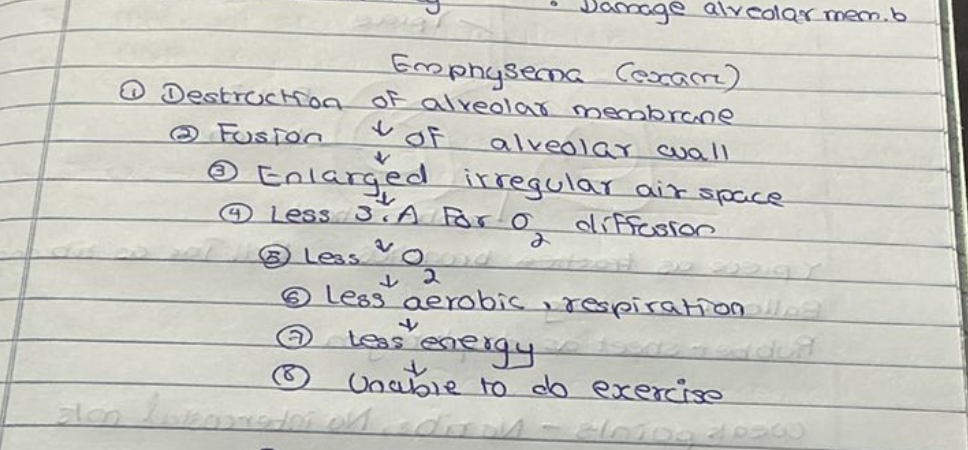 • Damage alveolar mem.b
Emphysema (exam)
① Destruction of alveolar membrane
↓
② Fusion of alveolar wall
↓
③ Enlarged irregular air space
↓
④ Less S.A For O₂ diffusion
↓
⑤ Less O₂
↓
⑥ Less aerobic, respiration
↓
⑦ Less energy
↓
⑧ Unable to do exercise